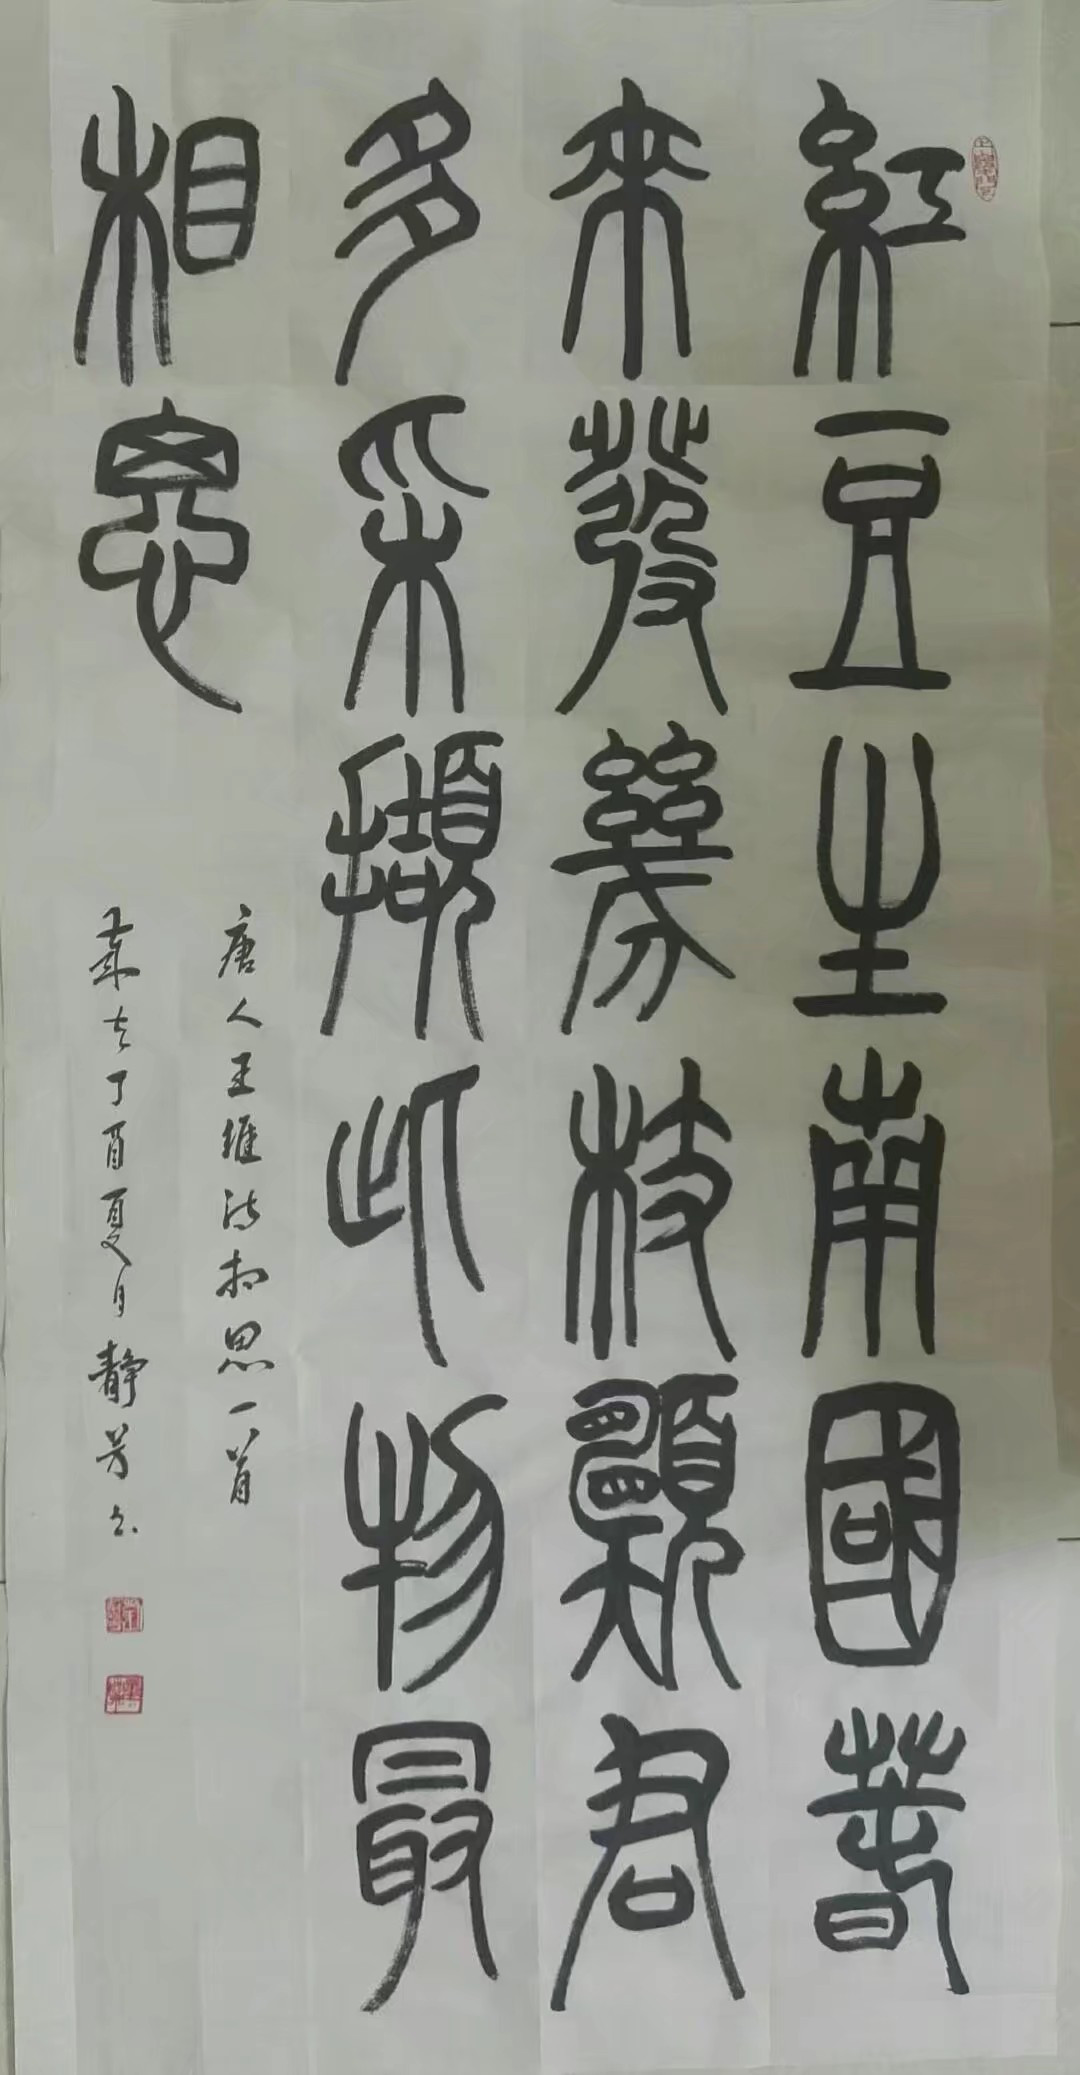 紅豆生南國春
來發幾枝願君
多采擷此物最
相思
唐人王維詩相思一首
歲在丁酉夏月靜芳書